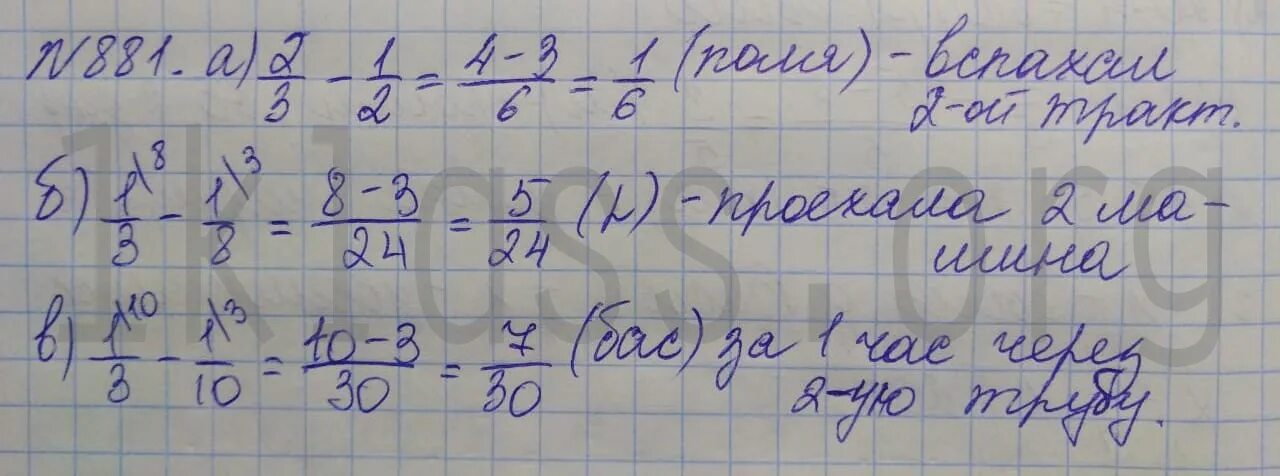 №881. а) 2/3 - 1/2 = 4-3/6 = 1/6 (поля) - вспахал
2-ой тракт.
б) 1\8/3 - 1\3/8 = 8-3/24 = 5/24 (ч) - проехала 2 ма-
шина
в) 1\10/3 - 1\3/10 = 10-3/30 = 7/30 (бас) за 1 час через
2-ую трубу.
1klass.org